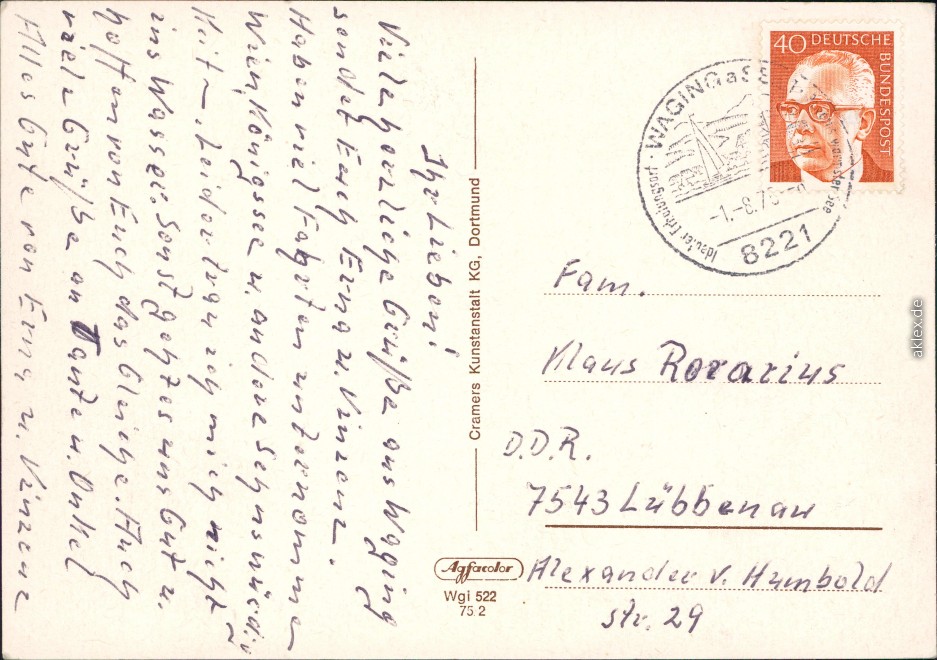 Ihr Lieben!
Viele herzliche Grüße aus Waging
sendet Euch Erna u. Vinzenz.
Haben viel Fahrten unternomme
Wien, Königssee u. andere Sehnswürdig
Keit~, Leider trau ich mich nicht
ins Wasser. Sonst geht es uns Gut u.
hoffen von Euch das Gleiche. Auch
viele Grüße an Tante u. Onkel
Alles Gute von Erna u. Vinzenz
Cramers Kunstanstalt KG, Dortmund
Agfacolor
Wgi 522
75 2
40 DEUTSCHE
BUNDESPOST
WAGING a S
-1.-8.76
8221
Idealer Erholungsort
Fam.
Klaus Rorarius
D.D.R.
7543 Lübbenau
Alexander v. Humbold
str. 29
aklex.de